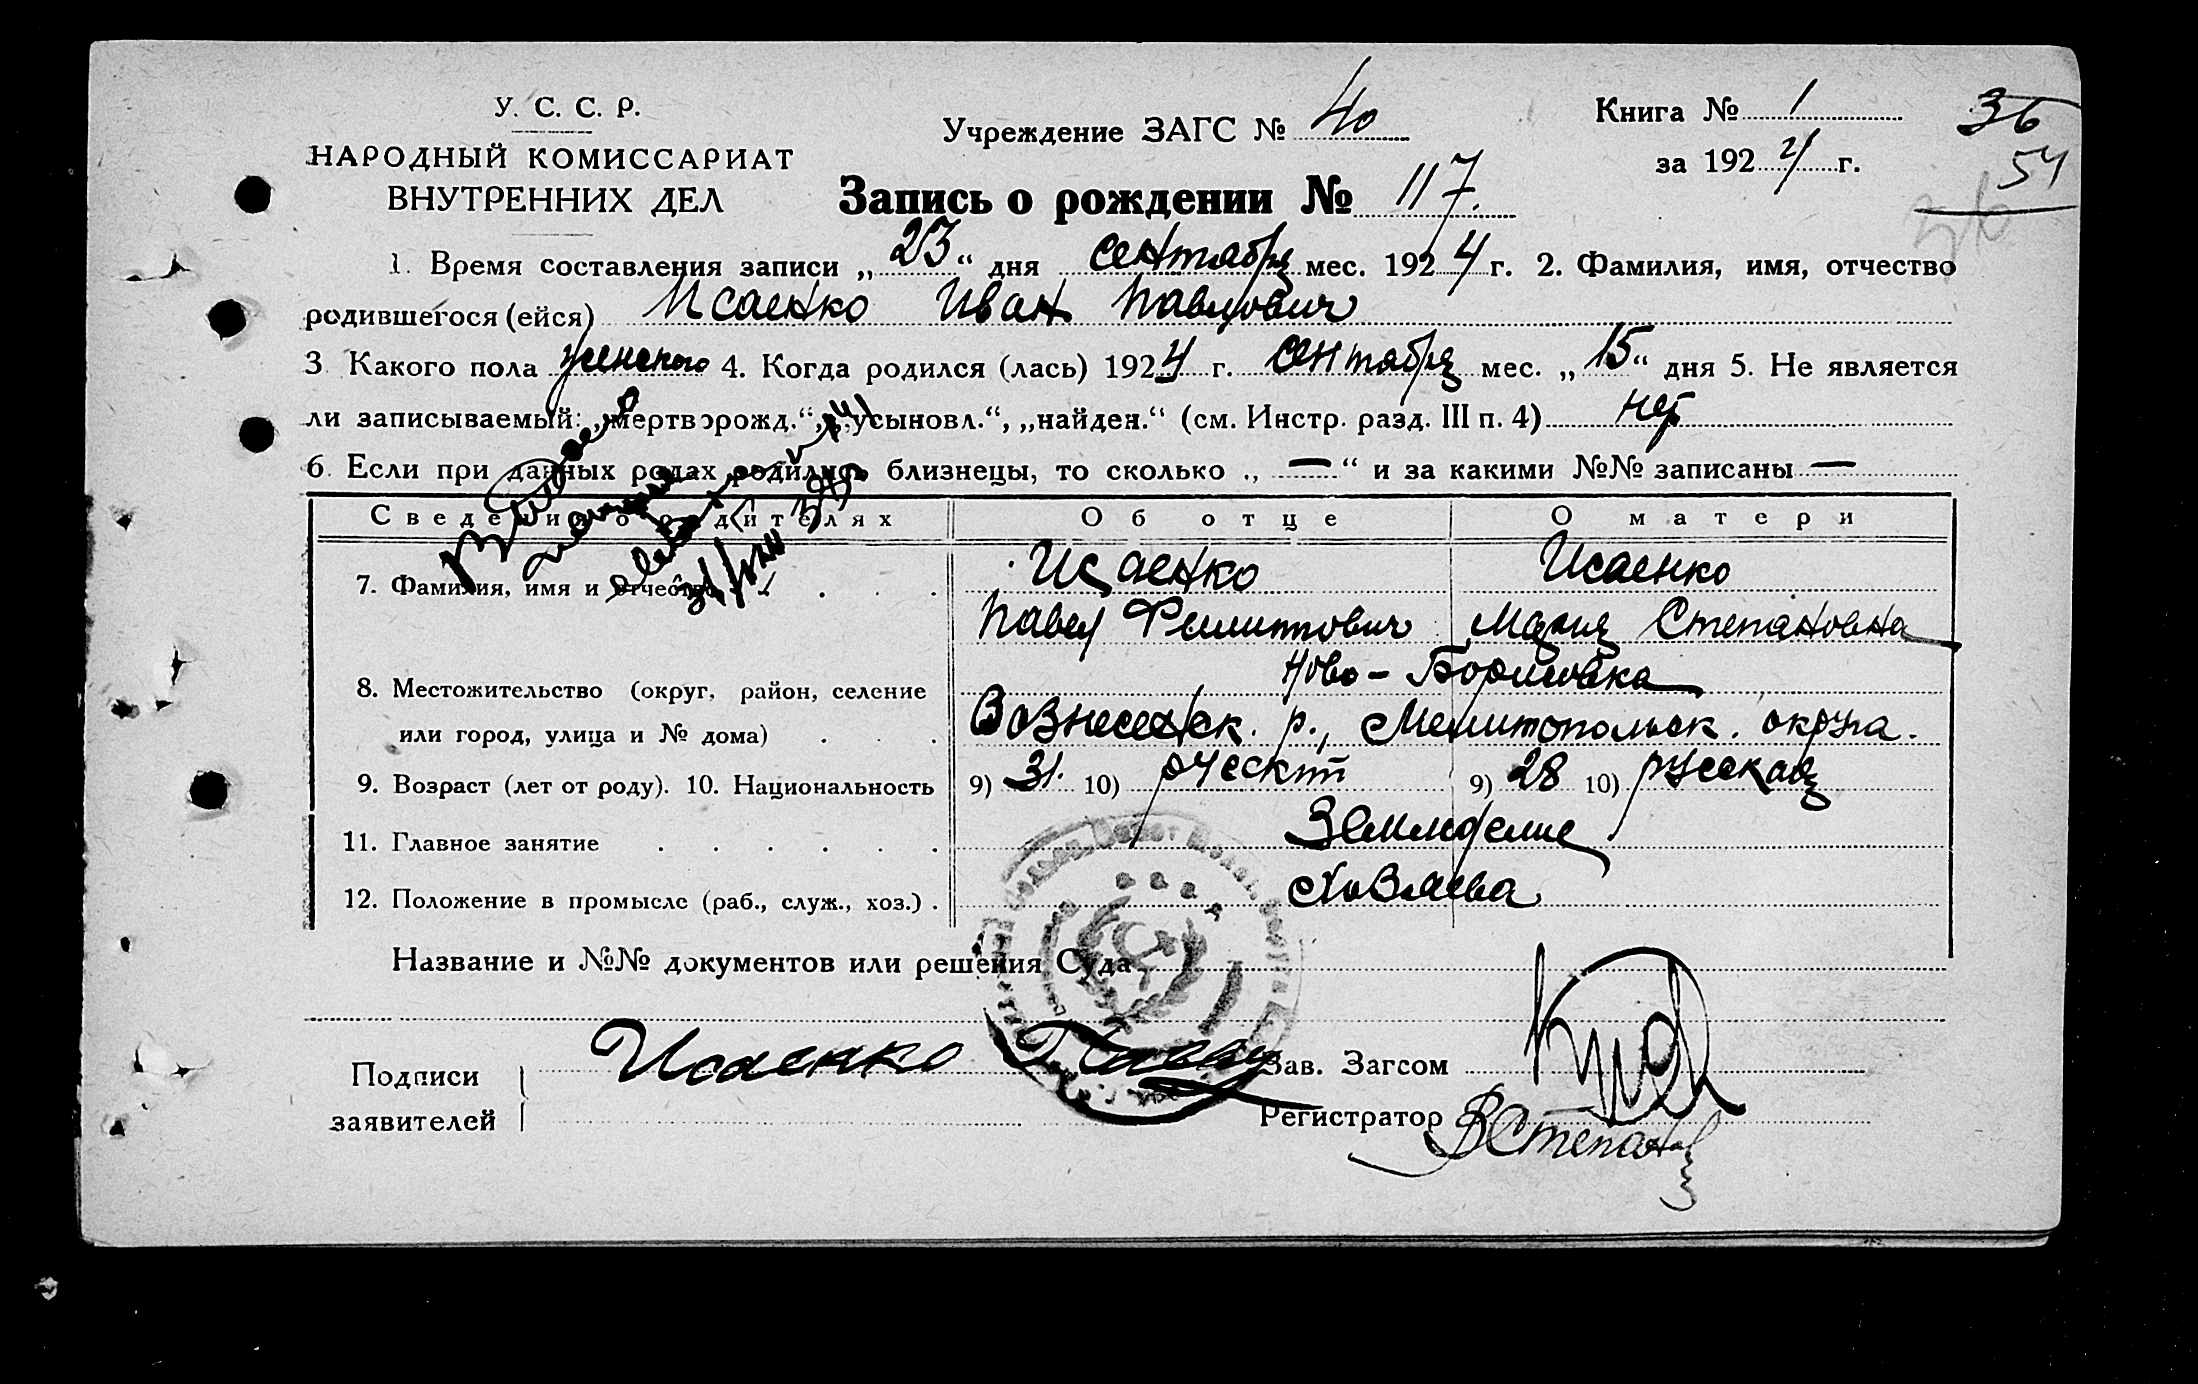 У. С. С. Р.
НАРОДНЫЙ КОМИССАРИАТ
ВНУТРЕННИХ ДЕЛ
Учреждение ЗАГС № 40
Книга № 1
за 1924 г.
36
54
36
Запись о рождении № 117.
1. Время составления записи „23“ дня сентября мес. 1924 г. 2. Фамилия, имя, отчество
родившегося (ейся) Исаенко Иван Павлович
3. Какого пола женского 4. Когда родился (лась) 1924 г. сентября мес. „15“ дня 5. Не является
ли записываемый: „мертворожд.“, „усыновл.“, „найден.“ (см. Инстр. разд. III п. 4) нет
6. Если при данных родах родились близнецы, то сколько „ — “ и за какими №№ записаны —
Сведения о родителях Об отце О матери
7. Фамилия, имя и отчество Исаенко Исаенко
Павел Филиппович Мария Степановна
8. Местожительство (округ, район, селение Ново-Борисовка
или город, улица и № дома) Вознесенск. р., Мелитопольск. округа.
9. Возраст (лет от роду). 10. Национальность 9) 31. 10) русский 9) 28 10) русская
11. Главное занятие Земледелие
12. Положение в промысле (раб., служ., хоз.) Хозяева
Название и №№ документов или решения Суда
Подписи
заявителей
Исаенко Павел
Зав. Загсом
Регистратор ВСтепан